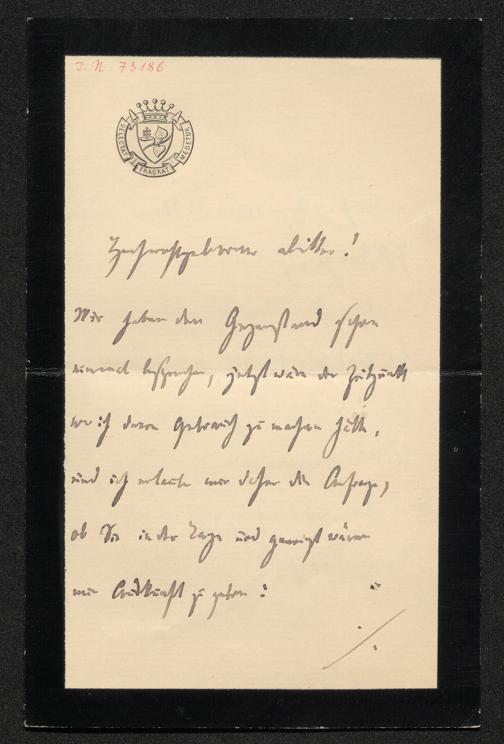 I. N. 73186
DELECTAT
FRAGRAT
MEDETUR
Hochwohlgeborner Ritter!
Wir haben den Gegenstand schon
einmal besprochen, jetzt wäre der Zeitpunkt
wo ich davon Gebrauch zu machen hätte,
und ich erlaube mir daher die Anfrage,
ob Sie in der Lage und geneigt wären
mir Auskunft zu geben: